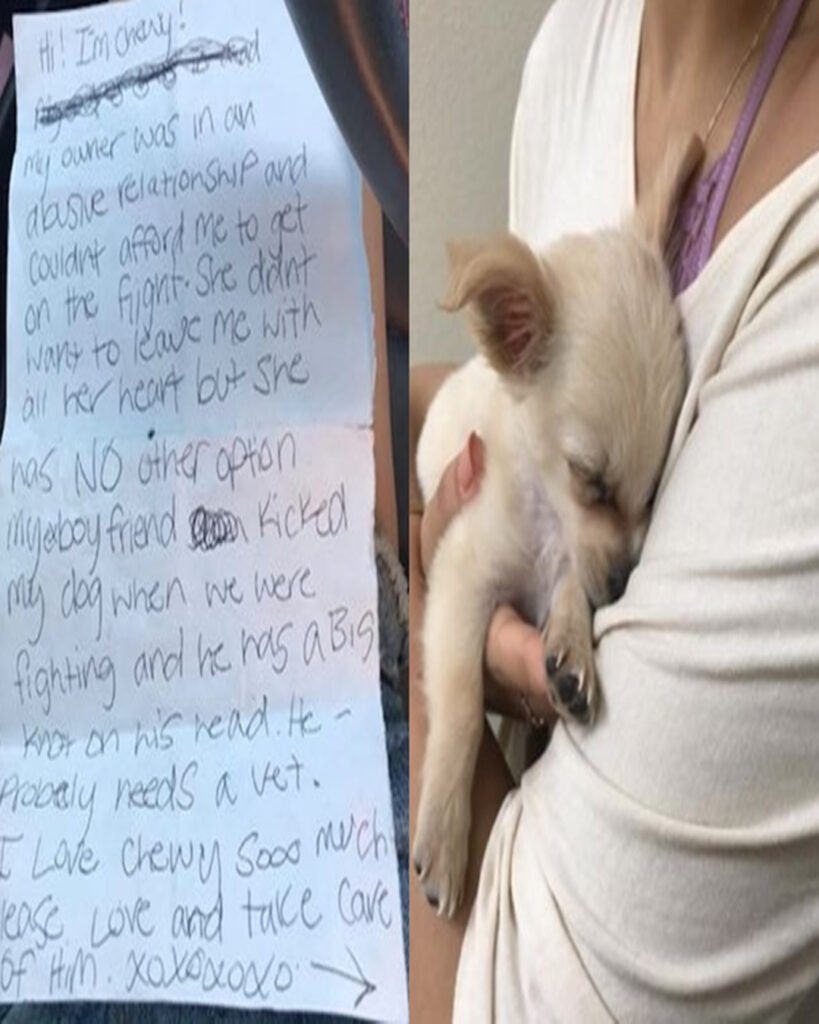 Hi! I'm chewy!
my owner was in an
abusive relationship and
couldnt afford me to get
on the flight. She didnt
want to leave me with
all her heart but she
has NO other option
my ex boyfriend kicked
my dog when we were
fighting and he has a Big
knot on his head. He -
Probebly needs a vet.
I Love chewy Sooo much
lease Love and take care
of Him. xoxoxoxo →